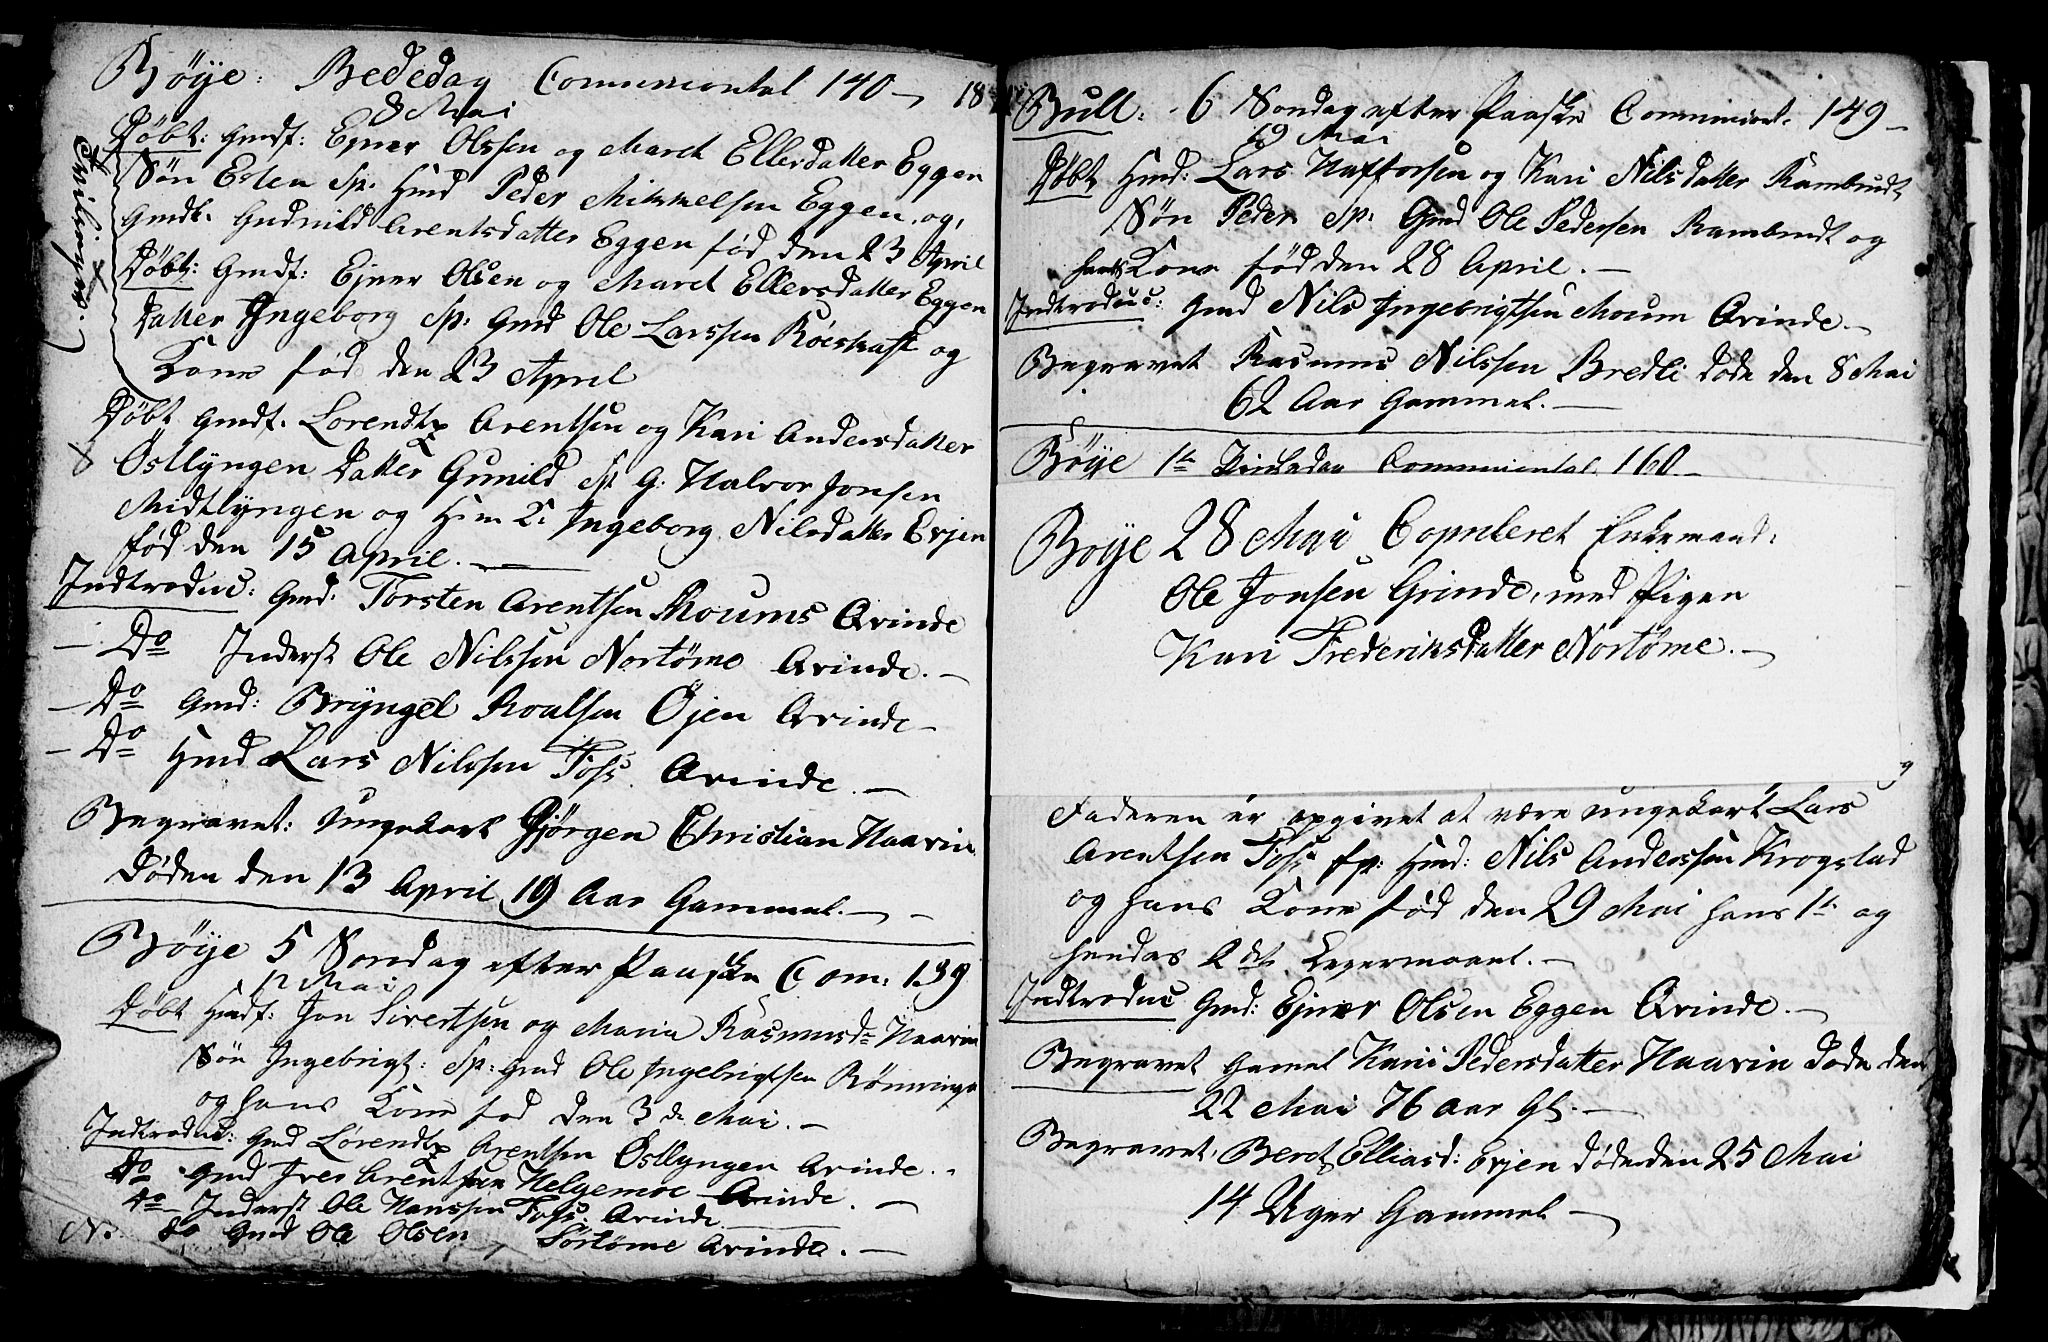 Böye: Bededag Communicantal 140 — 18
8 Mai
Tvilinger
Döbt: Gmdf: Ejner Olssen og Maret Ellersdatter Eggen
Sön Esten Sp: Hmd Peder Mikkelsen Eggen, og,
Gmdt. Gudnild Arentsdatter Eggen fød den 23 April
Döbt: Gmdf: Ejner Olsen og Maret Ellersdatter Eggen
Datter Ingeborg Sp: Gmd Ole Larssen og
Kone fød den 23 April
Döbt Gmdf. Lorendtz Arentsen og Kari Andersdatter
Östlyngen Datter Gunild Sp. G: Halvor Jonsen
Midtlyngen og Ingeborg Nilsdatter Evjen
fød den 15 April. —
Indtroduc: Gmd: Torsten Arentsen Moums Qvinde
— Do Inderst Ole Nilssen Nortöme Qvinde. —
— Do Gmd: Bryngel Roalsen Öjen Qvinde —
— Do Hmd Lars Nilssen Foss. Qvinde. —
Begravet: Ungekarl Gjörgen Christian Haavin
Döden den 13 April 19 Aar Gammel. — —
Böye 5 Söndag efter Paaske Com: 139
12 Mai
Döbt Hmdf: Jon Sivertsen og Maria Rasmusd: Haavin
Sön Ingebrigt: Sp: Gmd Ole Ingebrigtsen Rönninge
og hans Kone fød den 3de Mai. —
Indtroduc: Gmd Lorendtz Arentsen Östlyngen Qvinde. -
Do Gmd Iver Arentsen Helgemoe Qvinde. —
Do — Inderst Ole Hanssen Foss Qvinde
N. do Gmd Ole Olsen Sörtöme Qvinde. —
Bull: 6 Söndag efter Paaske Communicant. 149 —
19 Mai
Döbt Hmd: Lars Haftorsen og Kari Nilsdatter Rambudt
Sön Peder Sp: Gmd Ole Pedersen Rambudt og
hans Kone fød den 28 April. —
Indtroduc: Gmd Nils Ingebrigtsen Moum Qvinde. —
Begravet Rasmus Nilssen Bredli döde den 8 Mai
62 Aar Gammel. —
Böye 1te Pindsdag Communicantal 160 —
Boye 28 Mai Copuleret Enkemand:
Ole Jonsen Grinde, med Pigen
Kari Frederiksdatter Nortöme. —
Faderen er opgivet at være ungekarl Lars
Arentsen Foss Sp: Hmd: Nils Anderssen Krogstad
og hans Kone fød den 29 Mai hans 1te og
hendes 2det Leiermaal. —
Indtroduc Gmd: Ejner Olsen Eggen Qvinde. —
Begravet Gamel Kari Pedersdatter Haavin döde den
22 Mai 76 aar Gl. —
Begravet, Beret Elliasd: Evjen döde den 25 Mai
14 Uger Gammel —